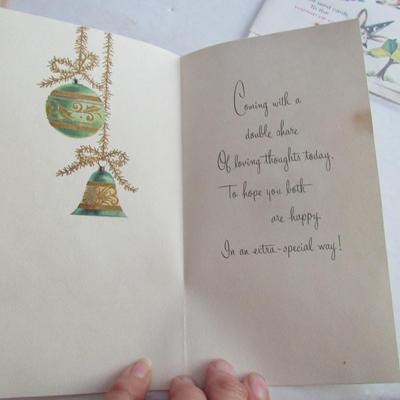 Coming with a
double share
Of loving thoughts today,
To hope you both
are happy
In an extra-special way!